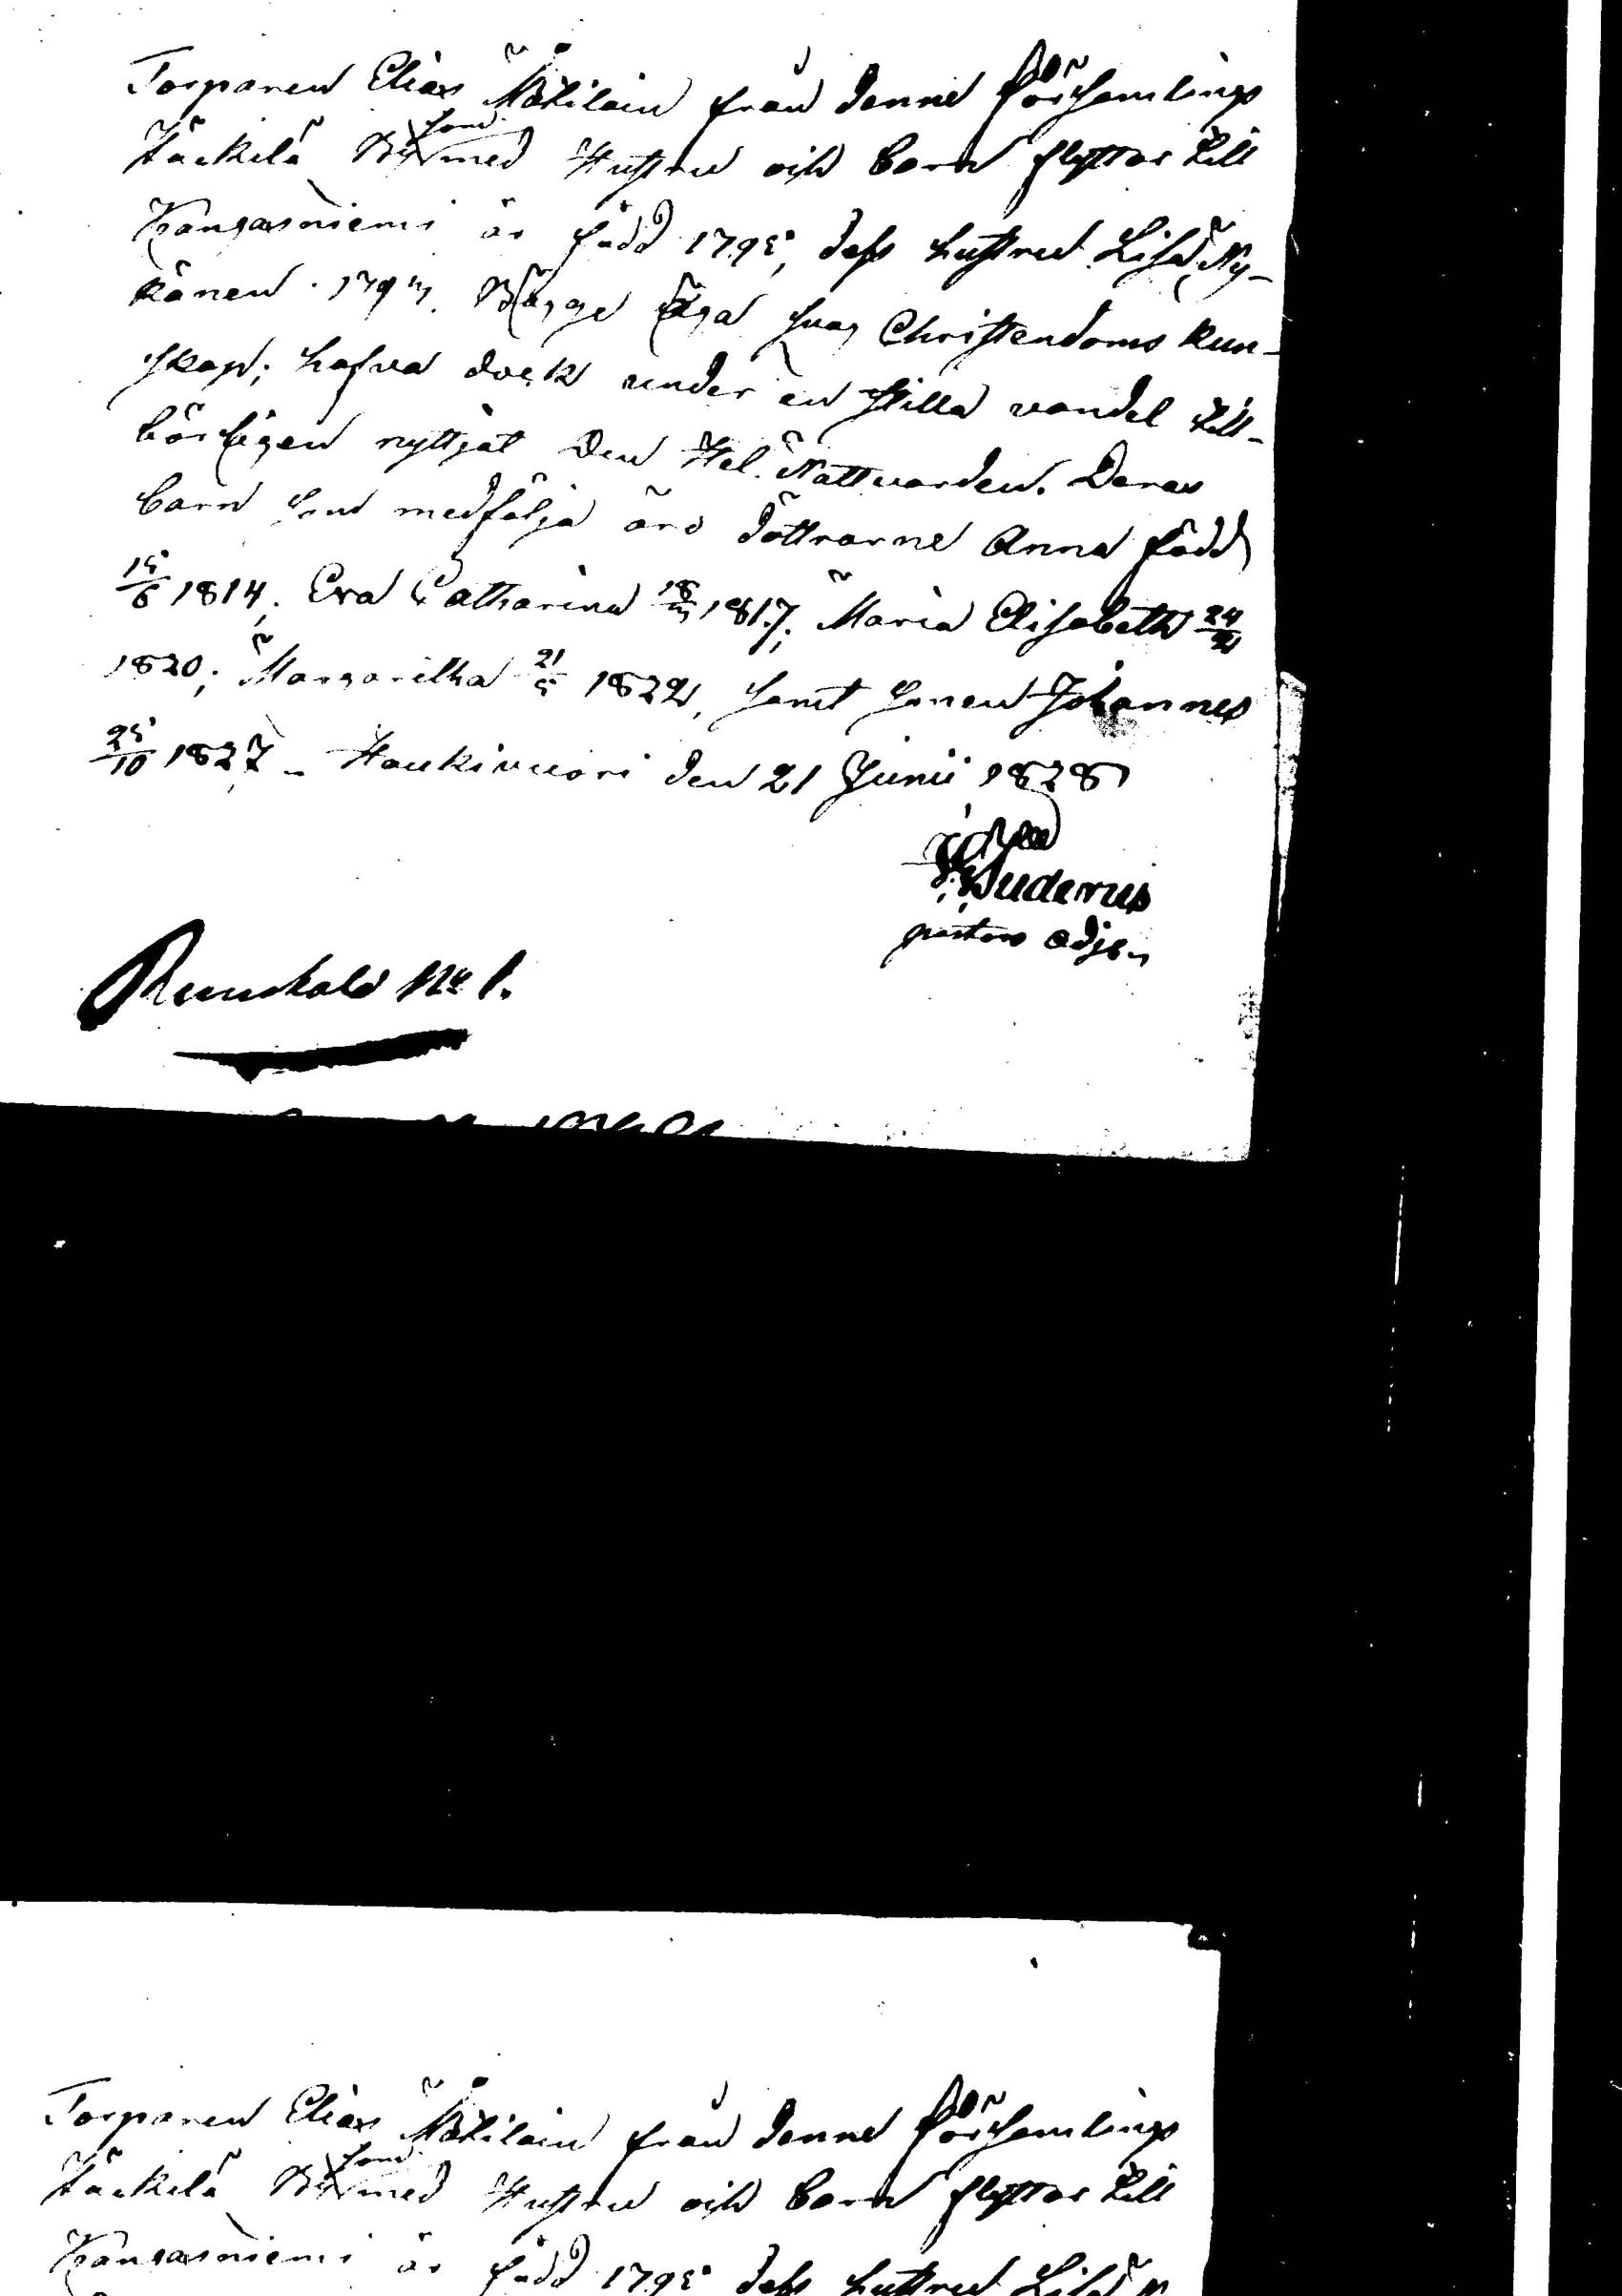 Torparen Elias Mökilain från denne församlings
Häkkilä By som med Hustru och barn flyttar till
Kangasniemi är född 1795, dess hustru Lisa Ny-
känen 1793. Bägge äga svag Christendoms kun-
skap; hafva dock under en stilla vandel till-
börligen nyttjat Den Hel. Nattvarden. Deras
barn som medfölja äro döttrarne Anna född
15/6 1814; Eva Catharina 18/3 1817; Maria Elisabeth 24/2
1820; Margaretha 21/5 1822, samt sonen Johannes
25/10 1827 - Haukivuori den 21 Junii 1828
pastors adj.
No 1.
Torparen Elias Mökilain från denne församlings
Häkkilä By som med Hustru och barn flyttar till
Kangasniemi är född 1795 dess hustru Lisa N